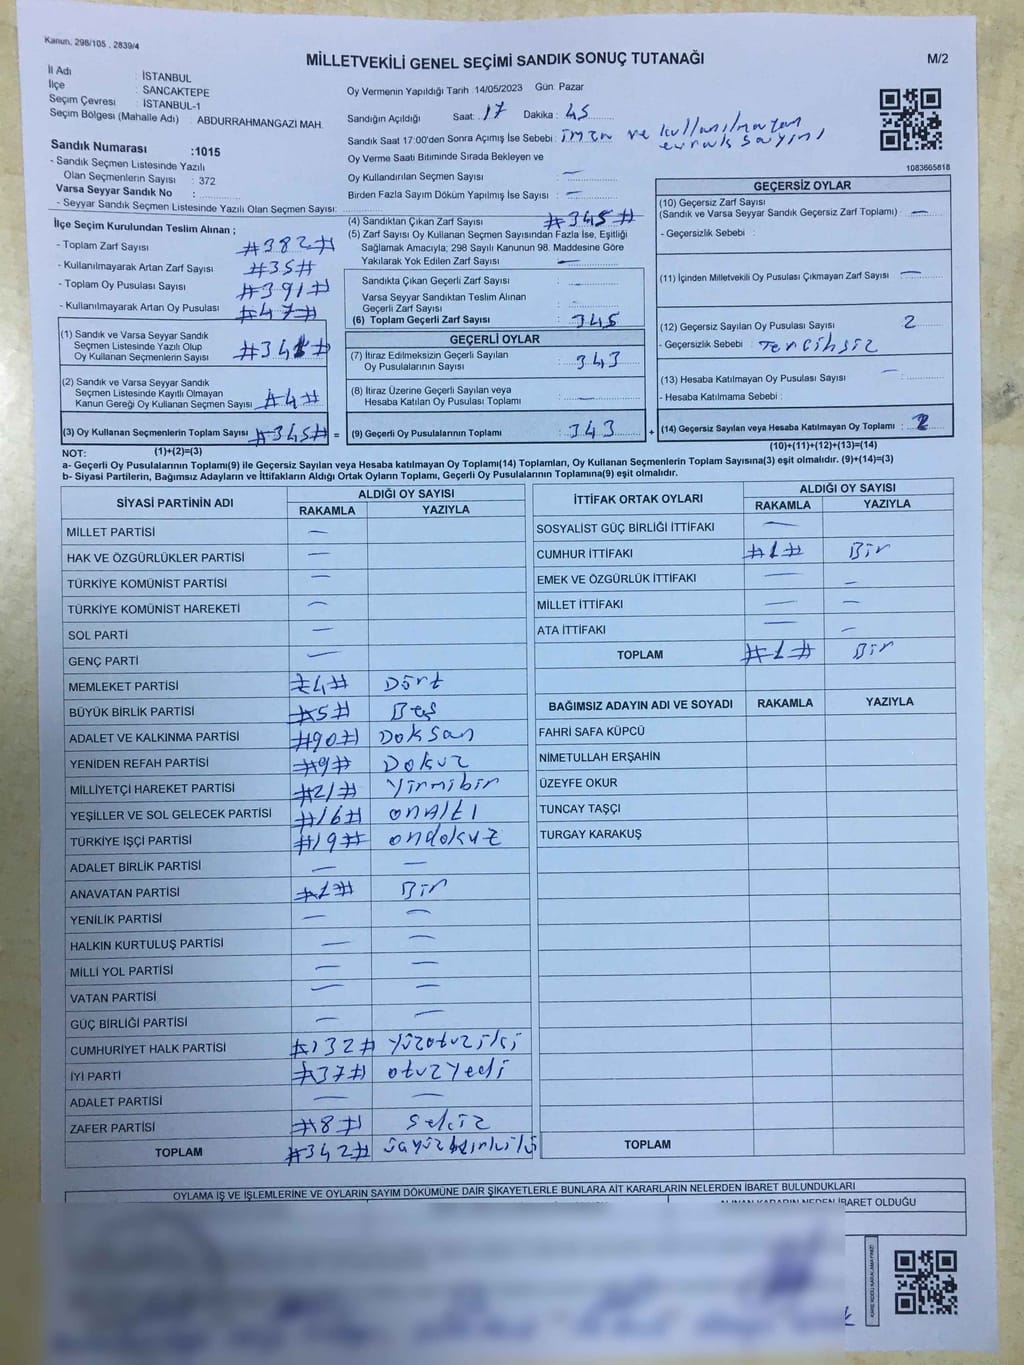 Kanun, 298/105 , 2839/4
MİLLETVEKİLİ GENEL SEÇİMİ SANDIK SONUÇ TUTANAĞI
M/2
İl Adı : İSTANBUL
İlçe : SANCAKTEPE
Seçim Çevresi : İSTANBUL-1
Seçim Bölgesi (Mahalle Adı) : ABDURRAHMANGAZİ MAH.
Sandık Numarası :1015
- Sandık Seçmen Listesinde Yazılı
Olan Seçmenlerin Sayısı : 372
Varsa Seyyar Sandık No :
- Seyyar Sandık Seçmen Listesinde Yazılı Olan Seçmen Sayısı:
Oy Vermenin Yapıldığı Tarih 14/05/2023 Gün: Pazar
Sandığın Açıldığı Saat: 17 Dakika : 45
Sandık Saat 17:00'den Sonra Açımış İse Sebebi : imza ve kullanılmayan
evrak sayımı
Oy Verme Saati Bitiminde Sırada Bekleyen ve
Oy Kullandırılan Seçmen Sayısı : —
Birden Fazla Sayım Döküm Yapılmış İse Sayısı : —
1083665818
İlçe Seçim Kurulundan Teslim Alınan ;
- Toplam Zarf Sayısı #382#
- Kullanılmayarak Artan Zarf Sayısı #35#
- Toplam Oy Pusulası Sayısı #391#
- Kullanılmayarak Artan Oy Pusulası #47#
(1) Sandık ve Varsa Seyyar Sandık
Seçmen Listesinde Yazılı Olup
Oy Kullanan Seçmenlerin Sayısı #341#
(2) Sandık ve Varsa Seyyar Sandık
Seçmen Listesinde Kayıtlı Olmayan
Kanun Gereği Oy Kullanan Seçmen Sayısı #4#
(3) Oy Kullanan Seçmenlerin Toplam Sayısı #345# =
(1)+(2)=(3)
(4) Sandıktan Çıkan Zarf Sayısı #345#
(5) Zarf Sayısı Oy Kullanan Seçmen Sayısından Fazla İse, Eşitliği
Sağlamak Amacıyla; 298 Sayılı Kanunun 98. Maddesine Göre
Yakılarak Yok Edilen Zarf Sayısı : —
Sandıkta Çıkan Geçerli Zarf Sayısı :
Varsa Seyyar Sandıktan Teslim Alınan
Geçerli Zarf Sayısı
(6) Toplam Geçerli Zarf Sayısı : 345
GEÇERLİ OYLAR
(7) İtiraz Edilmeksizin Geçerli Sayılan
Oy Pusulalarının Sayısı : 343
(8) İtiraz Üzerine Geçerli Sayılan veya
Hesaba Katılan Oy Pusulası Toplamı : —
(9) Geçerli Oy Pusulalarının Toplamı : 343 +
GEÇERSİZ OYLAR
(10) Geçersiz Zarf Sayısı
(Sandık ve Varsa Seyyar Sandık Geçersiz Zarf Toplamı) : —
- Geçersizlik Sebebi :
(11) İçinden Milletvekili Oy Pusulası Çıkmayan Zarf Sayısı : —
(12) Geçersiz Sayılan Oy Pusulası Sayısı : 2
- Geçersizlik Sebebi : Tercihsiz
(13) Hesaba Katılmayan Oy Pusulası Sayısı : —
- Hesaba Katılmama Sebebi :
(14) Geçersiz Sayılan veya Hesaba Katılmayan Oy Toplamı : 2
(10)+(11)+(12)+(13)=(14)
NOT:
a- Geçerli Oy Pusulalarının Toplamı(9) ile Geçersiz Sayılan veya Hesaba katılmayan Oy Toplamı(14) Toplamları, Oy Kullanan Seçmenlerin Toplam Sayısına(3) eşit olmalıdır. (9)+(14)=(3)
b- Siyasi Partilerin, Bağımsız Adayların ve İttifakların Aldığı Ortak Oyların Toplamı, Geçerli Oy Pusulalarının Toplamına(9) eşit olmalıdır.
SİYASİ PARTİNİN ADI
ALDIĞI OY SAYISI
RAKAMLA YAZIYLA
MİLLET PARTİSİ —
HAK VE ÖZGÜRLÜKLER PARTİSİ —
TÜRKİYE KOMÜNİST PARTİSİ —
TÜRKİYE KOMÜNİST HAREKETİ —
SOL PARTİ —
GENÇ PARTİ —
MEMLEKET PARTİSİ #4# Dört
BÜYÜK BİRLİK PARTİSİ #5# Beş
ADALET VE KALKINMA PARTİSİ #90# Doksan
YENİDEN REFAH PARTİSİ #9# Dokuz
MİLLİYETÇİ HAREKET PARTİSİ #21# Yirmibir
YEŞİLLER VE SOL GELECEK PARTİSİ #16# onAltı
TÜRKİYE İŞÇİ PARTİSİ #19# ondokuz
ADALET BİRLİK PARTİSİ — —
ANAVATAN PARTİSİ #1# Bir
YENİLİK PARTİSİ — —
HALKIN KURTULUŞ PARTİSİ — —
MİLLİ YOL PARTİSİ — —
VATAN PARTİSİ — —
GÜÇ BİRLİĞİ PARTİSİ — —
CUMHURİYET HALK PARTİSİ #132# Yüzotuziki
İYİ PARTİ #37# otuzYedi
ADALET PARTİSİ — —
ZAFER PARTİSİ #8# sekiz
TOPLAM #342#
İTTİFAK ORTAK OYLARI
ALDIĞI OY SAYISI
RAKAMLA YAZIYLA
SOSYALİST GÜÇ BİRLİĞİ İTTİFAKI —
CUMHUR İTTİFAKI #1# Bir
EMEK VE ÖZGÜRLÜK İTTİFAKI — —
MİLLET İTTİFAKI — —
ATA İTTİFAKI — —
TOPLAM #1# Bir
BAĞIMSIZ ADAYIN ADI VE SOYADI RAKAMLA YAZIYLA
FAHRİ SAFA KÜPCÜ
NİMETULLAH ERŞAHİN
ÜZEYFE OKUR
TUNCAY TAŞÇI
TURGAY KARAKUŞ
TOPLAM
OYLAMA İŞ VE İŞLEMLERİNE VE OYLARIN SAYIM DÖKÜMÜNE DAİR ŞİKAYETLERLE BUNLARA AİT KARARLARIN NELERDEN İBARET BULUNDUKLARI
ALINAN KARARIN NEDEN İBARET OLDUĞU